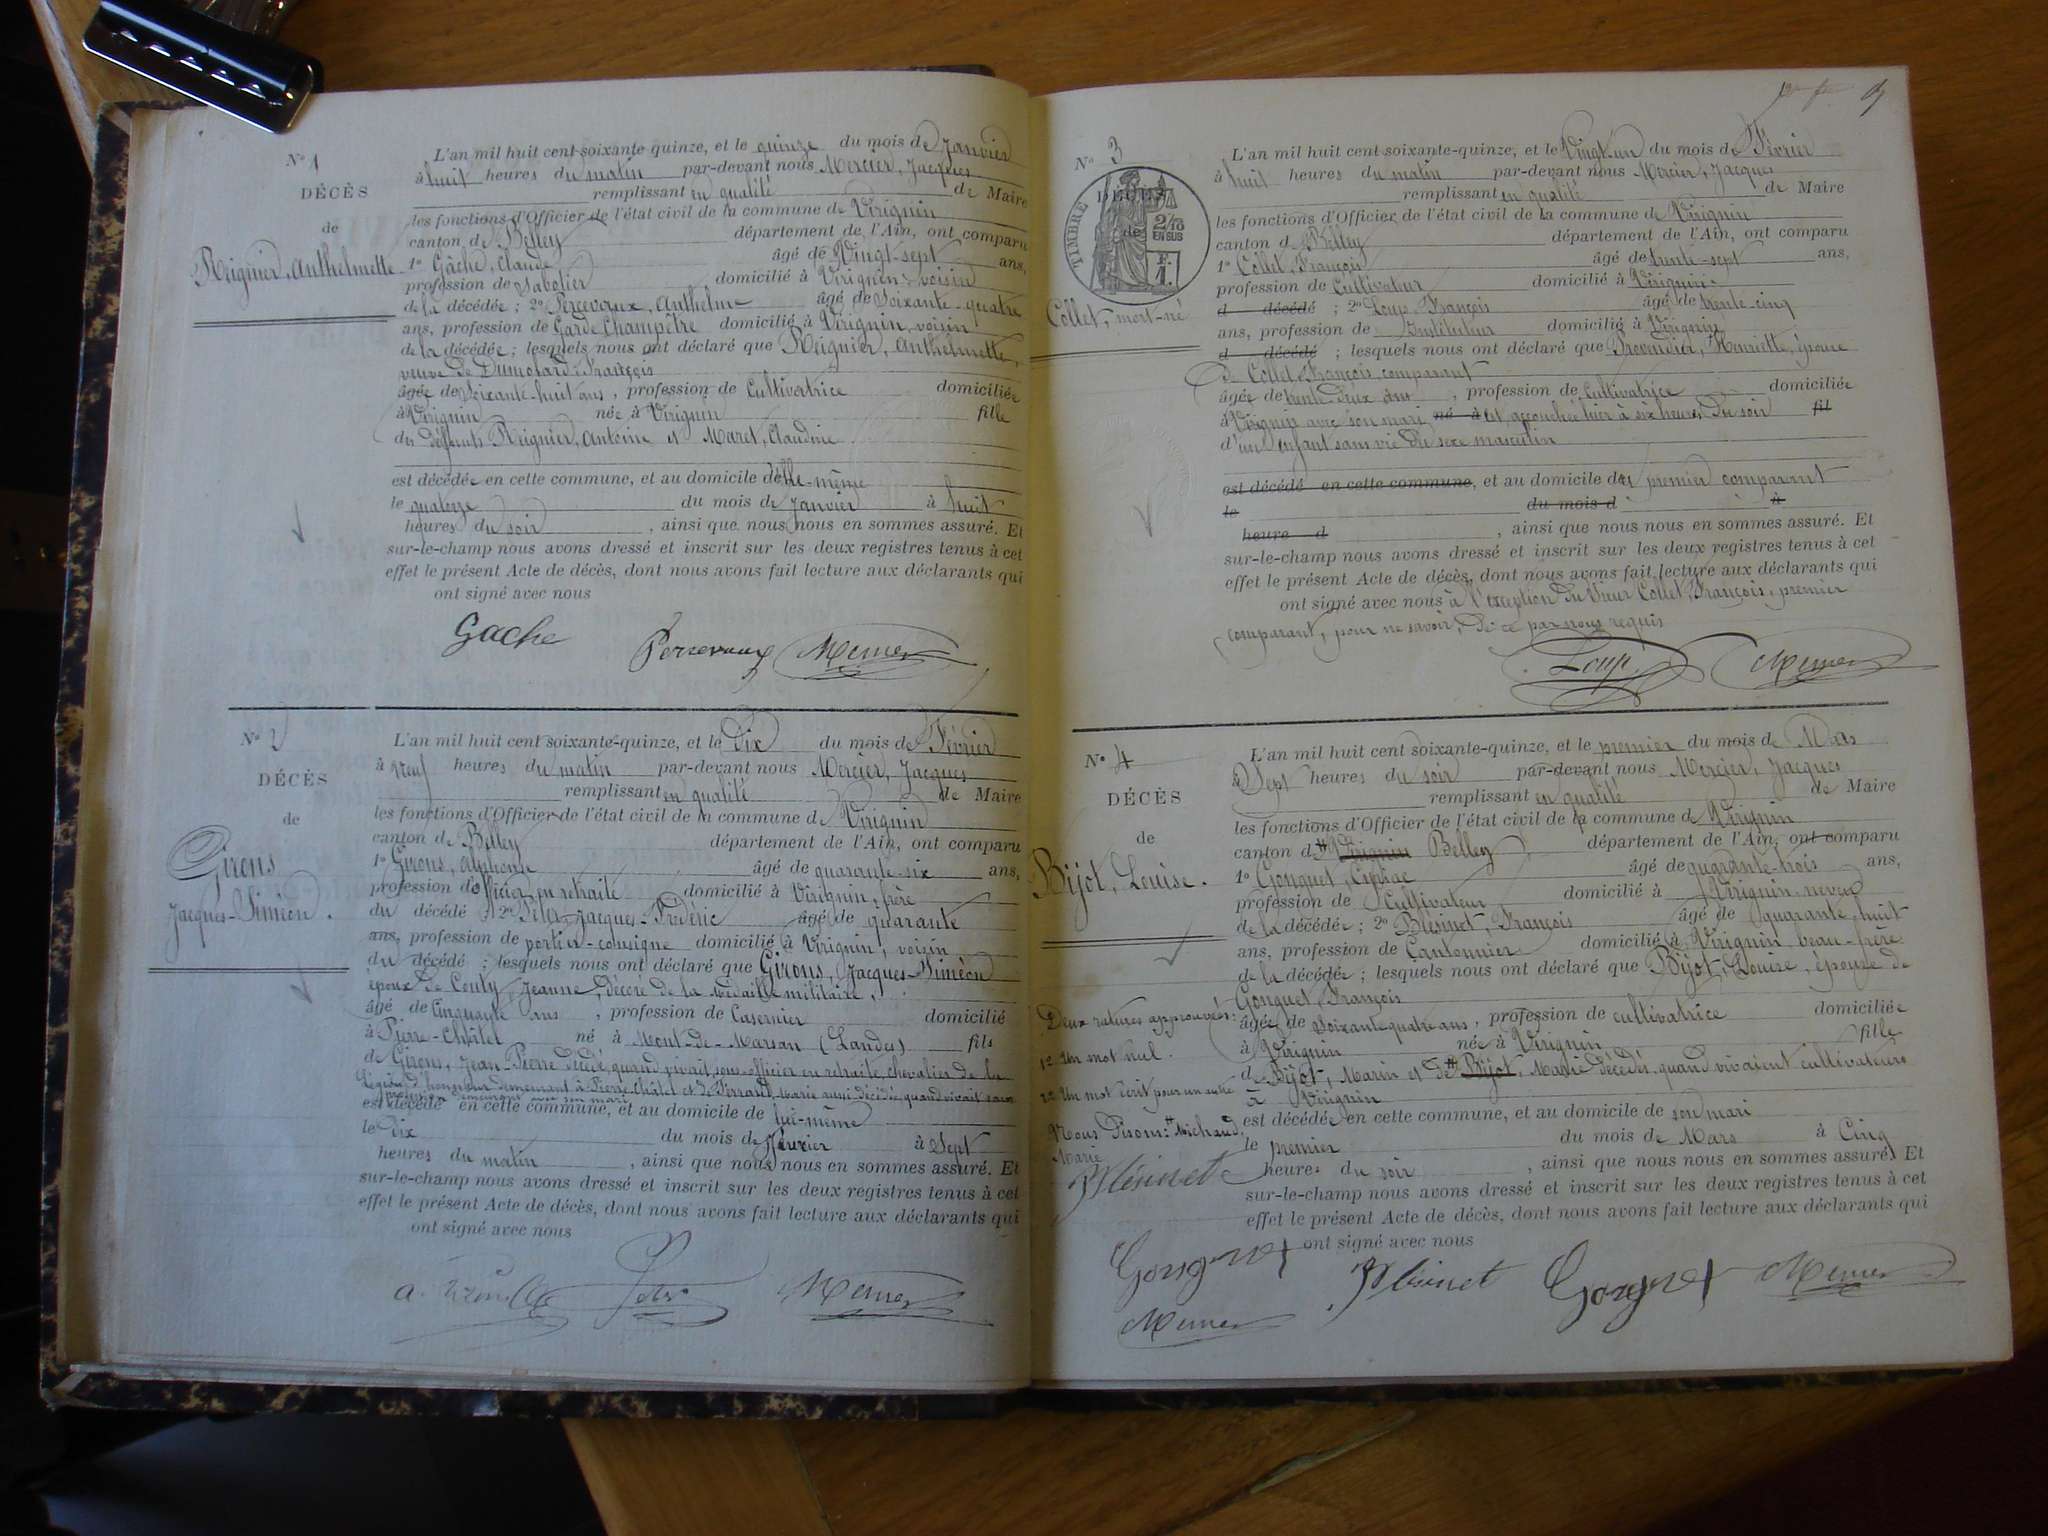 N° 1
DÉCÈS
de
Reignier, Anthelmette
L'an mil huit cent soixante quinze, et le quinze du mois de Janvier
à huit heures du matin par-devant nous Mercier, Jacques
remplissant en qualité de Maire
les fonctions d'Officier de l'état civil de la commune de Virignin
canton de Belley département de l'Ain, ont comparu
1° Gâche, Claude âgé de Vingt-sept ans,
profession de Sabotier domicilié à Virignin, voisin
de la décédée ; 2° Percevaux, Anthelme âgé de Soixante-quatre
ans, profession de Garde Champetre domicilié à Virignin, voisin
de la décédée ; lesquels nous ont déclaré que Reignier, Anthelmette,
veuve de Dumolard, François
âgée de Soixante-huit ans, profession de Cultivatrice domiciliée
à Virignin née à Virignin fille
des défunts Reignier, Antoine et Maret, Claudine
est décédée en cette commune, et au domicile d'elle-même
le quatorze du mois de Janvier à huit
heures du soir, ainsi que nous nous en sommes assuré. Et
sur-le-champ nous avons dressé et inscrit sur les deux registres tenus à cet
effet le présent Acte de décès, dont nous avons fait lecture aux déclarants qui
ont signé avec nous
Gache Percevaux Mercier
N° 2
DÉCÈS
de
Girons
Jacques-Siméon.
L'an mil huit cent soixante-quinze, et le Dix du mois de Février
à Neuf heures du matin par-devant nous Mercier, Jacques
remplissant en qualité de Maire
les fonctions d'Officier de l'état civil de la commune de Virignin
canton de Belley département de l'Ain, ont comparu
1° Girons, Alphonse âgé de quarante-six ans,
profession d'officier en retraite domicilié à Virignin, frère
du décédé ; 2° Jacques-Frédéric âgé de quarante
ans, profession de portier-consigne domicilié à Virignin, voisin
du décédé ; lesquels nous ont déclaré que Girons, Jacques-Siméon
époux de Couty, Jeanne, décoré de la Médaille militaire,
âgé de Cinquante ans, profession de Casernier domicilié
à Pierre-Châtel né à Mont-de-Marsan (Landes) fils
de Girons, Jean-Pierre décédé, quand vivait sous-officier en retraite, chevalier de la
Légion d'honneur demeurant à Pierre-Châtel et de Marie aussi décédée quand vivait sans
profession demeurant avec son mari
est décédé en cette commune, et au domicile de lui-même
le Dix du mois de Février à Sept
heures du matin, ainsi que nous nous en sommes assuré. Et
sur-le-champ nous avons dressé et inscrit sur les deux registres tenus à cet
effet le présent Acte de décès, dont nous avons fait lecture aux déclarants qui
ont signé avec nous
Mercier
N° 3
DÉCÈS
de
TIMBRE
2/10
EN SUS
F.
1.
Collet, mort-né
L'an mil huit cent soixante-quinze, et le Vingt-un du mois de Février
à huit heures du matin par-devant nous Mercier, Jacques
remplissant en qualité de Maire
les fonctions d'Officier de l'état civil de la commune de Virignin
canton d Belley département de l'Ain, ont comparu
1° Collet, François âgé de trente-sept ans,
profession de Cultivateur domicilié à Virignin
d décédé ; 2° Loup, François âgé de trente-cinq
ans, profession de Instituteur domicilié à Virignin
d décédé ; lesquels nous ont déclaré que Provendier, Henriette, épouse
de Collet, François, comparant
âgée de trente-deux ans, profession de Cultivatrice domiciliée
à Virignin avec son mari né à est accouchée hier à six heures du soir fil
d'un enfant sans vie du sexe masculin
est décédé en cette commune, et au domicile du premier comparant
le du mois d à
heure d, ainsi que nous nous en sommes assuré. Et
sur-le-champ nous avons dressé et inscrit sur les deux registres tenus à cet
effet le présent Acte de décès, dont nous avons fait lecture aux déclarants qui
ont signé avec nous à l'exception du Sieur Collet, François, premier
comparant, pour ne savoir, de ce par nous requis
Loup Mercier
N° 4
DÉCÈS
de
Bijot, Louise.
Deux ratures approuvées:
1° Un mot nul.
2° Un mot écrit pour un autre
Nous disons: Michaud,
Marie
Blésinet
Gonguet
Mercier
L'an mil huit cent soixante-quinze, et le premier du mois de Mars
à Sept heures du soir par-devant nous Mercier, Jacques
remplissant en qualité de Maire
les fonctions d'Officier de l'état civil de la commune de Virignin
canton d Virignin Belley département de l'Ain, ont comparu
1° Gonguet, âgé de quarante-trois ans,
profession de Cultivateur domicilié à Virignin neveu
de la décédée ; 2° Blésinet, François âgé de quarante huit
ans, profession de Cantonnier domicilié à Virignin, beau-frère
de la décédée ; lesquels nous ont déclaré que Bijot, Louise, épouse de
Gonguet, François
âgée de Soixante quatre ans, profession de cultivatrice domiciliée
à Virignin née à Virignin fille
de Bijot, Marin et de Bijot, Marie décédés, quand vivaient cultivateurs
à Virignin
est décédée en cette commune, et au domicile de son mari
le premier du mois de Mars à Cinq
heures du soir, ainsi que nous nous en sommes assuré. Et
sur-le-champ nous avons dressé et inscrit sur les deux registres tenus à cet
effet le présent Acte de décès, dont nous avons fait lecture aux déclarants qui
ont signé avec nous
Blésinet Gonguet Mercier